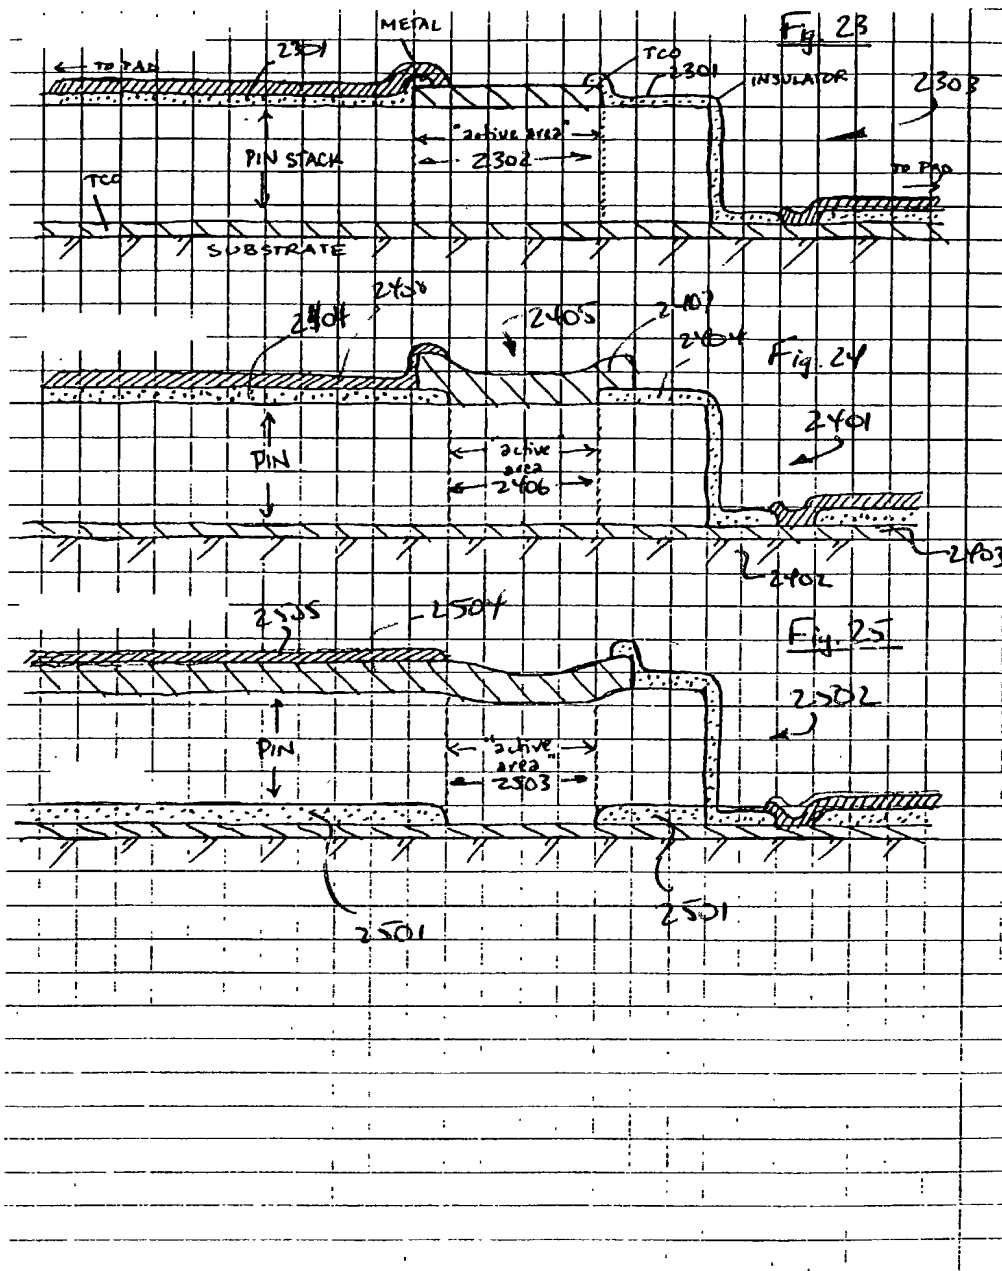 METAL
Fig. 23
← TO PAD
2301
TCO
2301
INSULATOR
2303
"active area"
2302
PIN STACK
TCO
TO PAD
SUBSTRATE
2404
2408
2405
2407
2404
Fig. 24
2401
PIN
"active
area
2406
2403
2402
2505
2504
Fig. 25
2502
PIN
"active
area"
2503
2501
2501